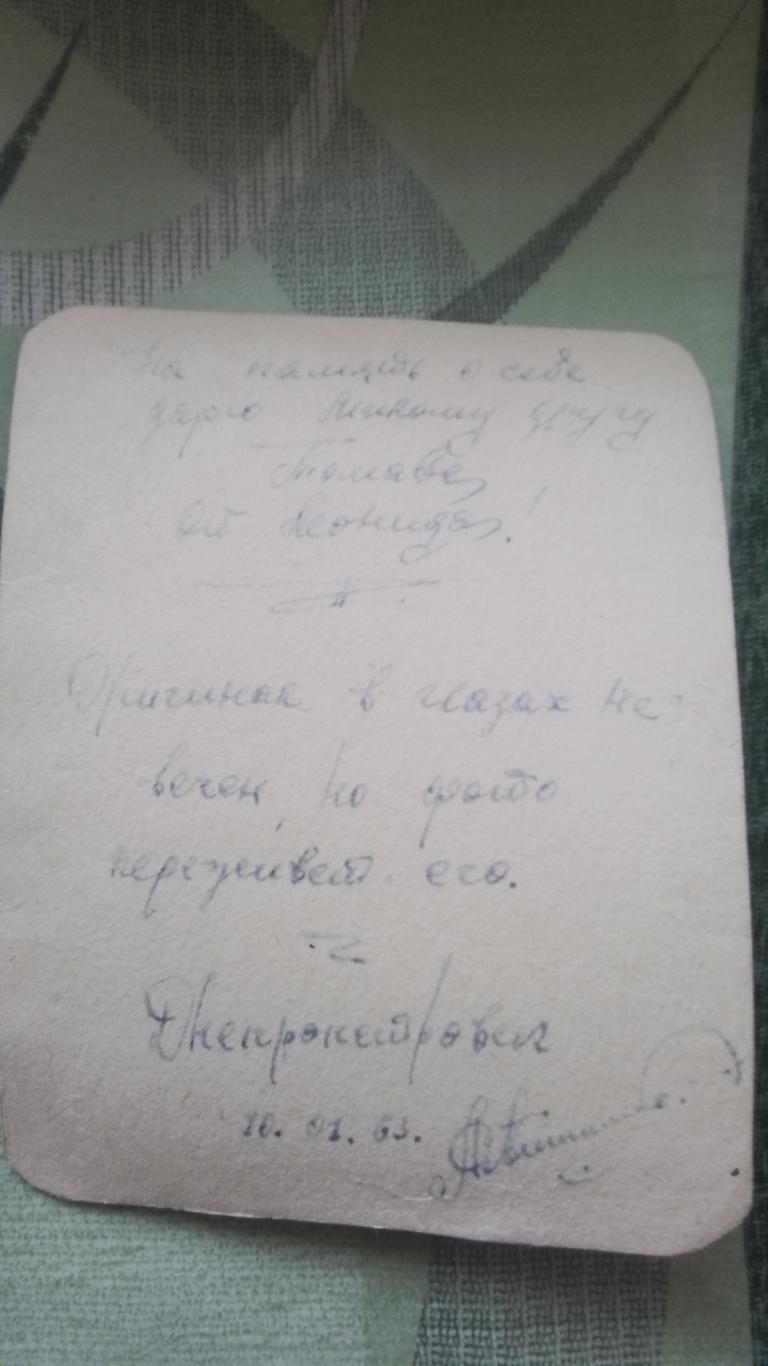 На память о себе
дарю другу
от Леонида!
Оригинал в глазах не
вечен, но фото
переживет его.
Днепропетровск
10. 01. 63.